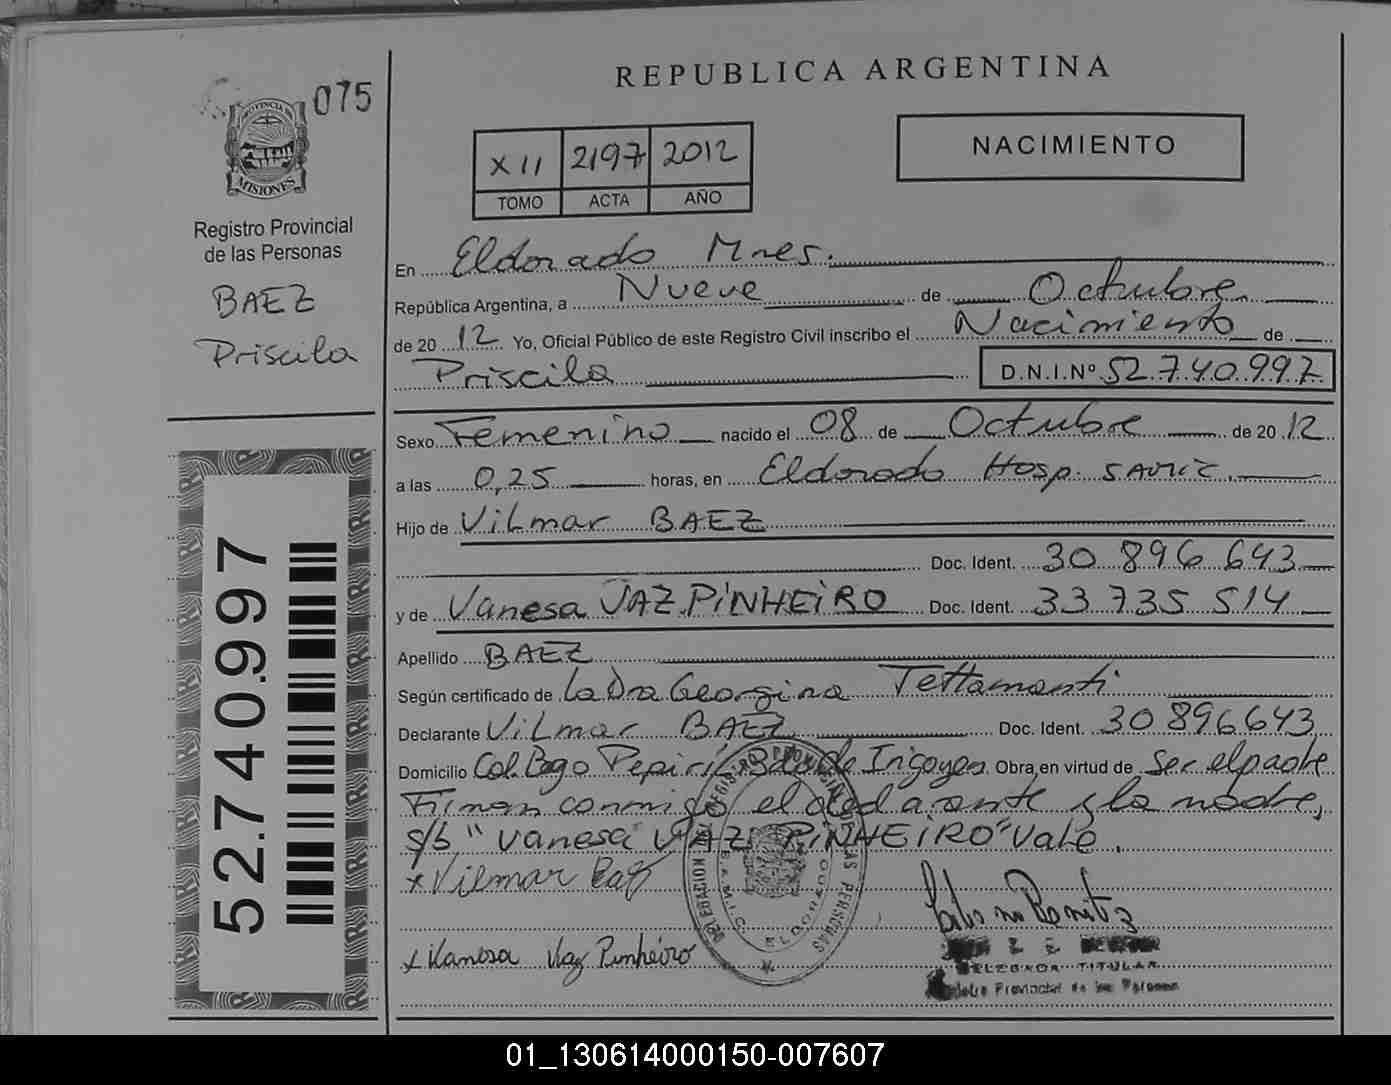 075
REPUBLICA ARGENTINA
PROVINCIA DE
MISIONES
XII 2197 2012
TOMO ACTA AÑO
NACIMIENTO
Registro Provincial
de las Personas
BAEZ
Priscila
En Eldorado Mnes.
República Argentina, a Nueve de Octubre
de 20 12 Yo, Oficial Público de este Registro Civil inscribo el Nacimiento de
Priscila D.N.I.Nº 52.740.997
Sexo Femenino nacido el 08 de Octubre de 20 12
a las 0,25 horas, en Eldorado Hosp. SAMIC.
Hijo de Vilmar BAEZ
Doc. Ident. 30 896 643
y de Vanesa VAZ PINHEIRO Doc. Ident. 33 735 514
Apellido BAEZ
Según certificado de la Dra Georgina Tettamanti
Declarante Vilmar BAEZ Doc. Ident. 30 896 643
Domicilio Col. Bago Pepirí Bdo de Irigoyen Obra en virtud de ser el padre
Firman conmigo el declarante y la madre,
s/b "Vanesa VAZ PINHEIRO" Vale.
x Vilmar Baez
x Vanesa Vaz Pinheiro
DELEGACION REGISTRO PROVINCIAL DE LAS PERSONAS
ELDORADO
DELEGADA TITULAR
Registro Provincial de las Personas
52.740.997
01_130614000150-007607